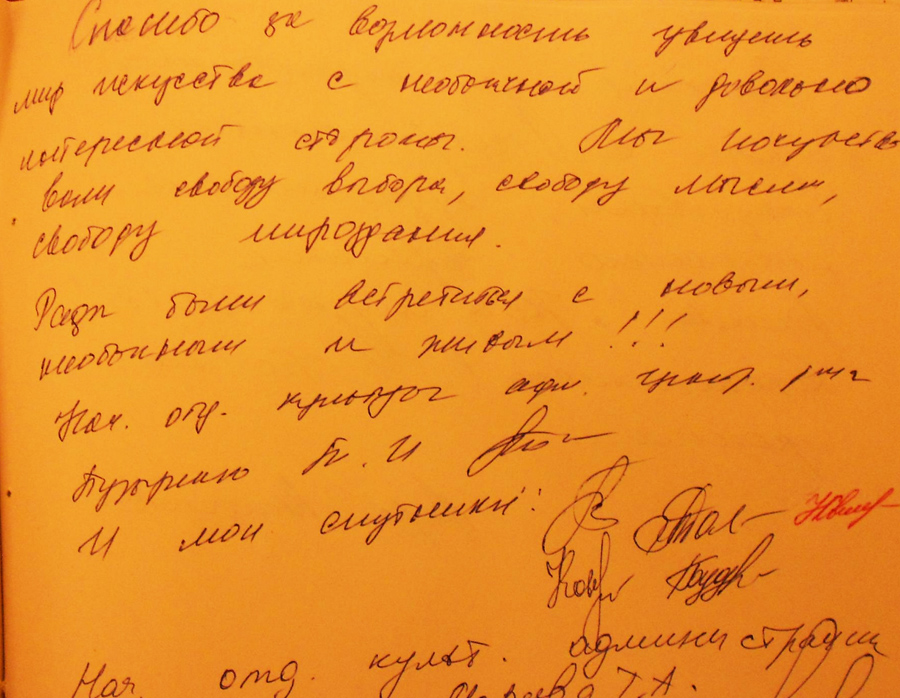 Спасибо за возможность увидеть
мир искусства с необычной и довольно
интересной стороны. Мы почувство
вали свободу выбора, свободу мысли,
свободу мироздания.
Рады были встретиться с новым,
необычным и живым!!!
Нач. отд. культуры адм. центр. р-на
П. И
И мои спутники:
Нач. отд. культ. администрации
Т.А.